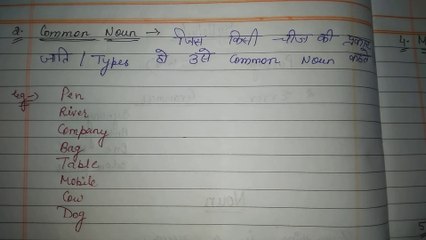 2- Common Noun → जिस किसी चीज की
जाति / Types हो उसे Common Noun कहते
eg → Pen
River
Company
Bag
Table
Mobile
Cow
Dog
4-
Noun